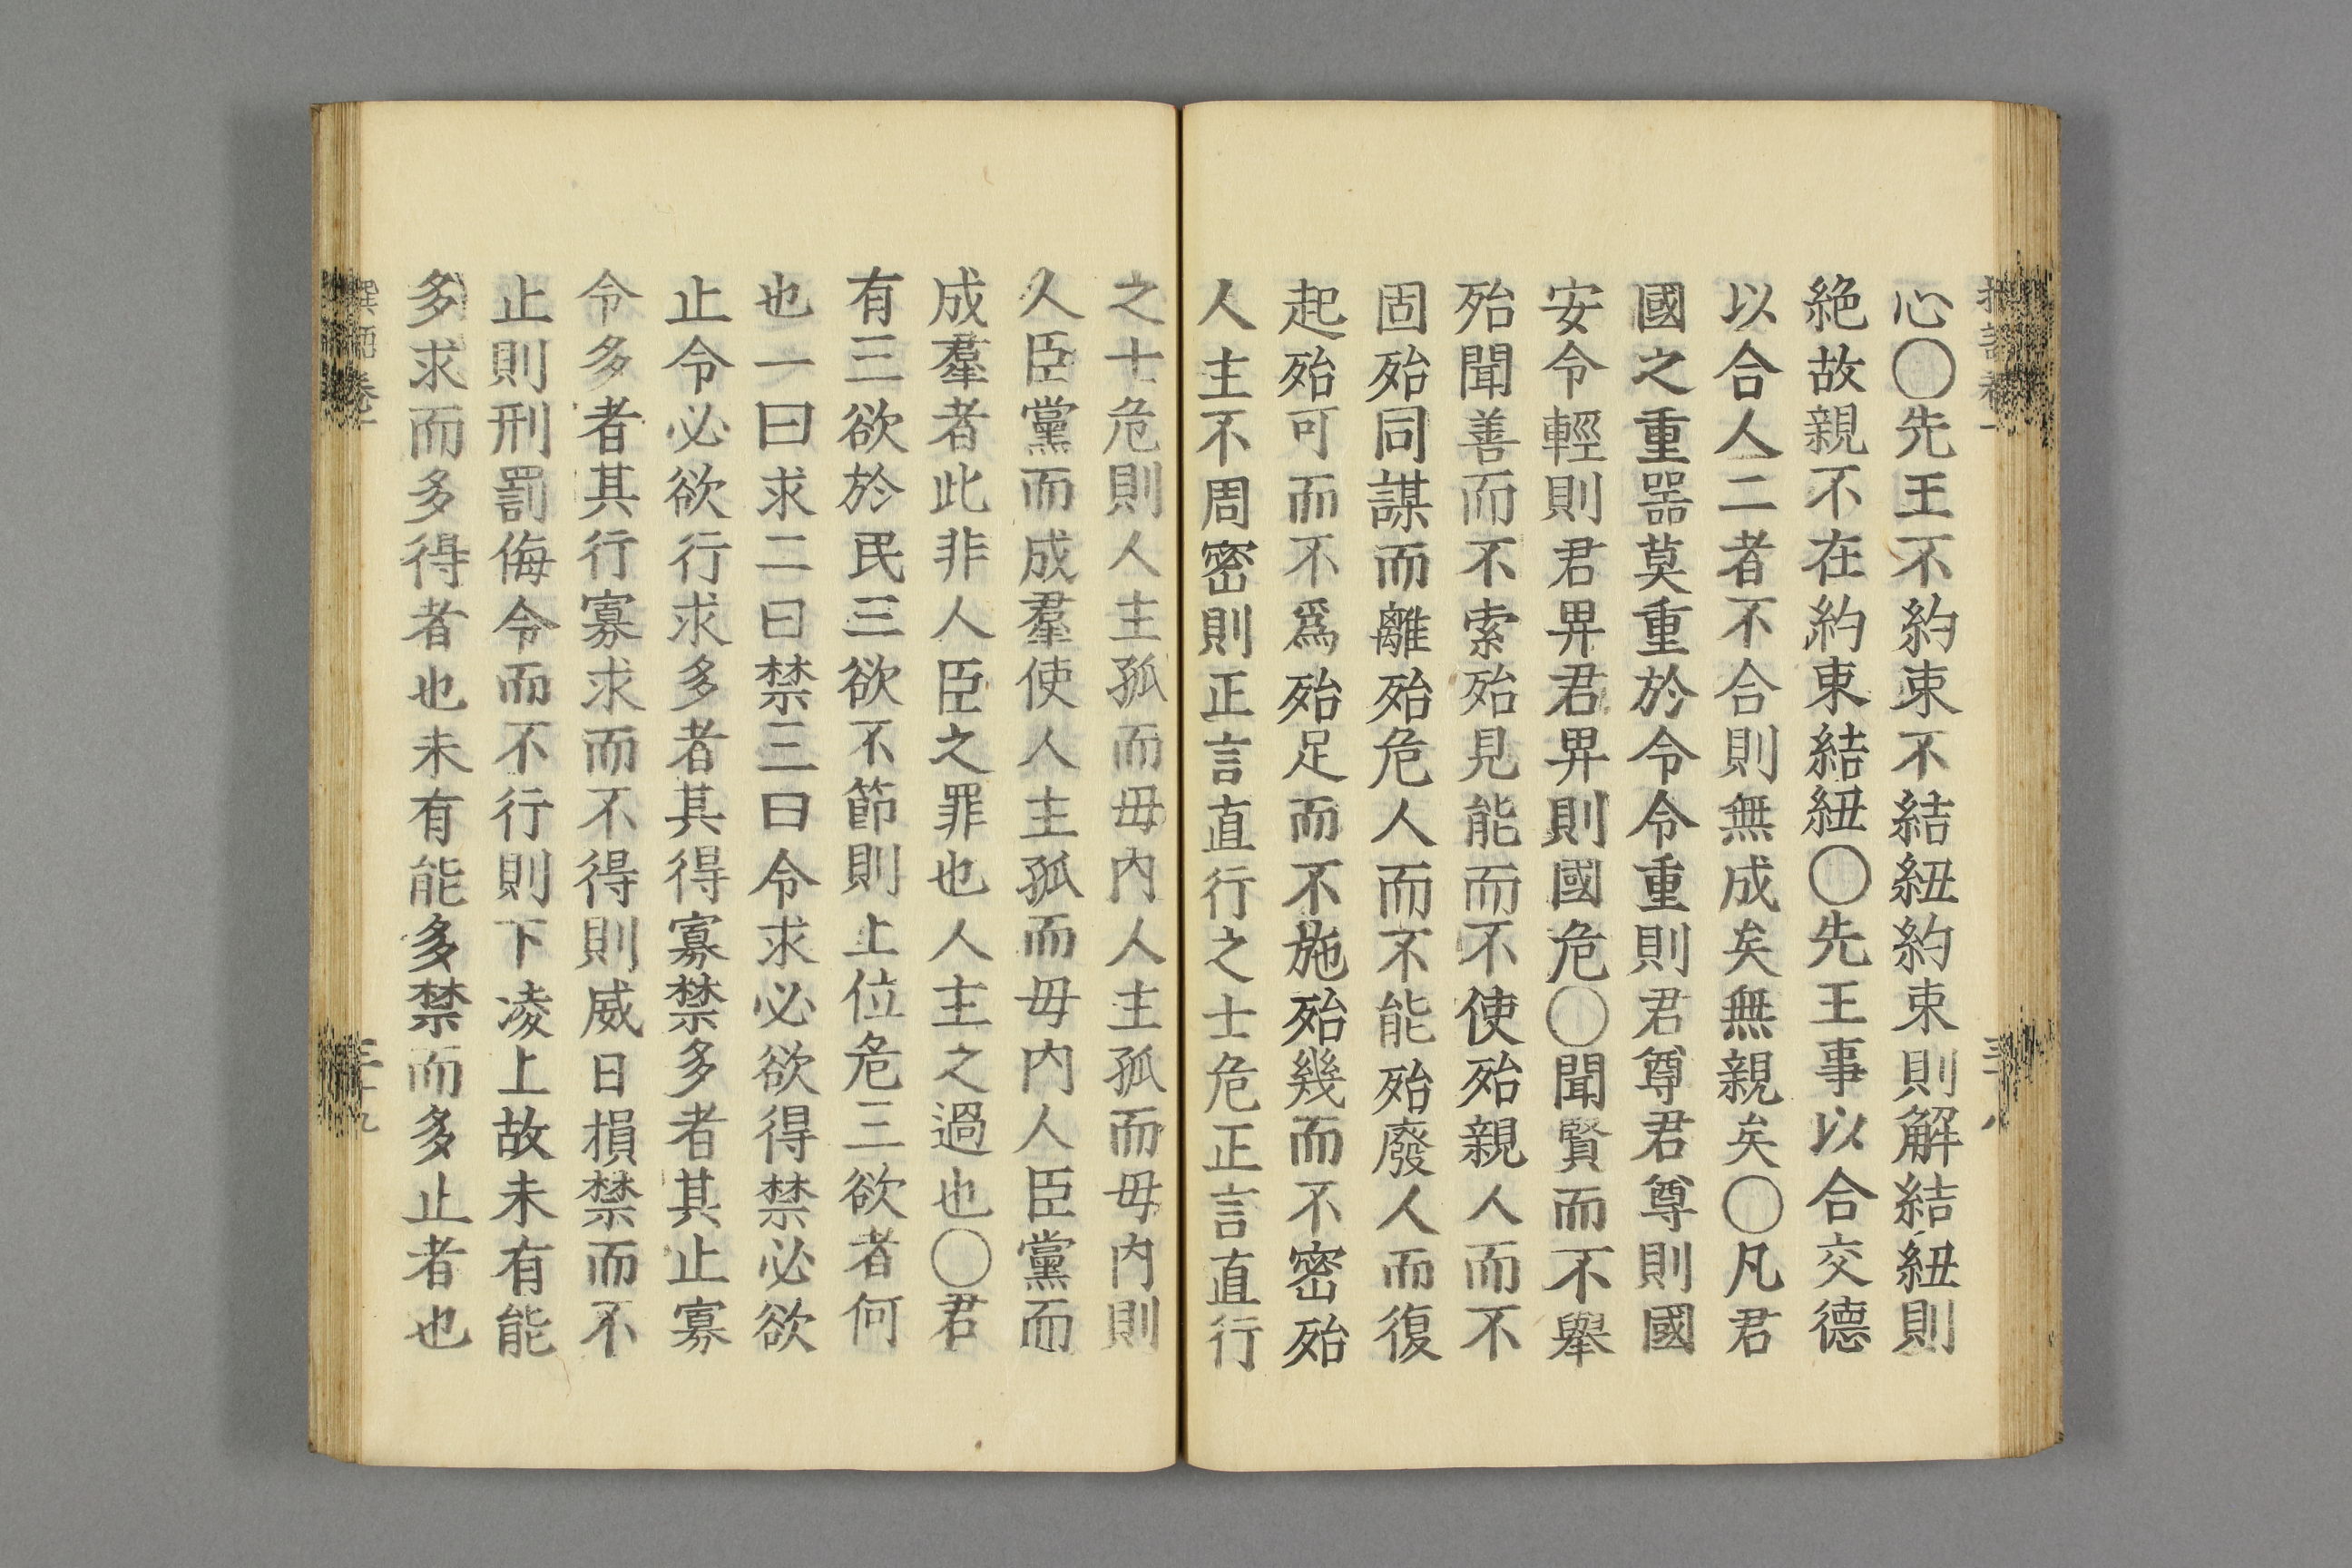 心〇先王不約束不結紐約束則解結紐則
絶故親不在約束結紐〇先王事以合交德
以合人二者不合則無成矣無親矣〇凡君
國之重器莫重於令令重則君尊君尊則國
安令輕則君畀君畀則國危〇聞賢而不舉
殆聞善而不索殆見能而不使殆親人而不
固殆同謀而離殆危人而不能殆廢人而復
起殆可而不爲殆足而不施殆幾而不密殆
人主不周密則正言直行之士危正言直行
之士危則人主孤而毋内人主孤而毋内則
人臣黨而成羣使人主孤而毋内人臣黨而
成羣者此非人臣之罪也人主之過也〇君
有三欲於民三欲不節則上位危三欲者何
也一曰求二曰禁三曰令求必欲得禁必欲
止令必欲行求多者其得寡禁多者其止寡
令多者其行寡求而不得則威日損禁而不
止則刑罰侮令而不行則下凌上故未有能
多求而多得者也未有能多禁而多止者也